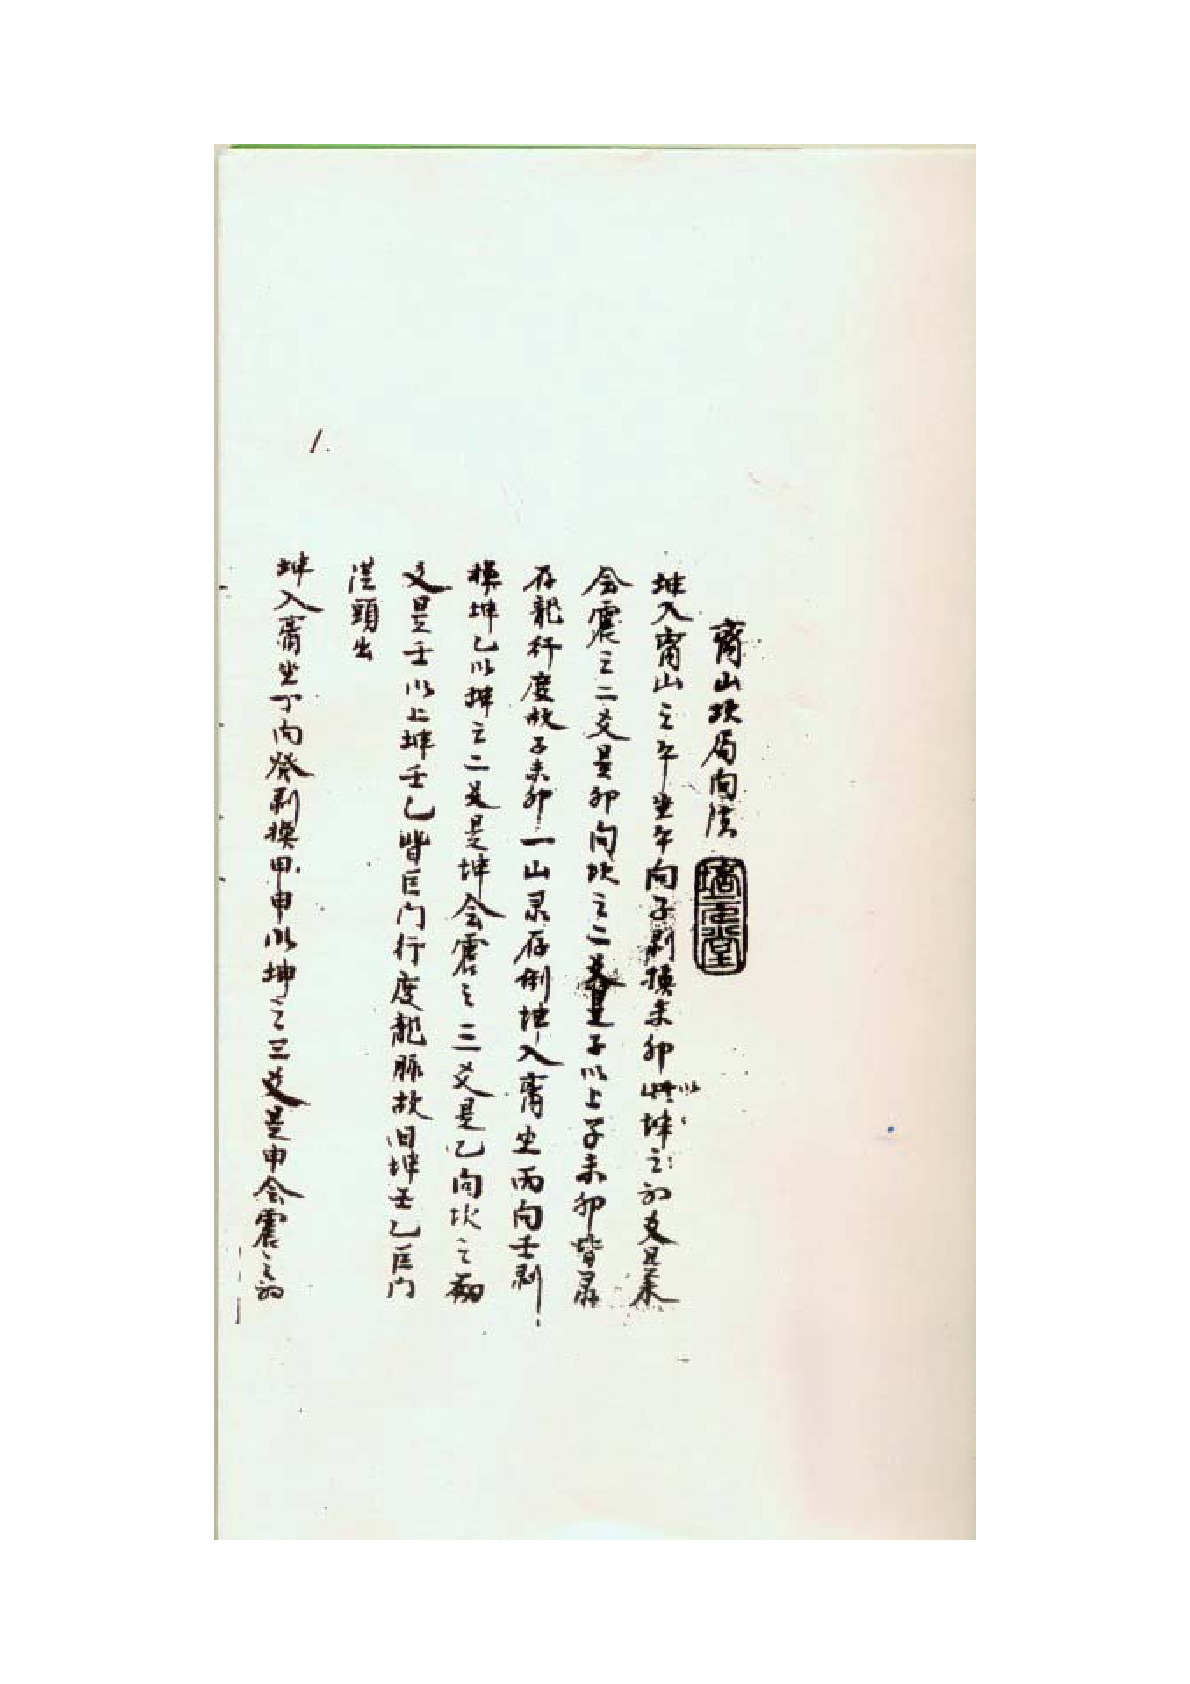 离山坎局向法
坤入离山之午坐午向子剥换未卯以坤之初爻是未
会震之二爻是卯向坎之二爻是子以上子未卯皆录
存龙行度故子未卯一山录存倒坤入离坐丙向壬剥
换坤乙以坤之二爻是坤会震之三爻是乙向坎之初
爻是壬以上坤壬乙皆巨门行度龍脉故曰坤壬乙巨门
從頭出
坤入离坐丁向癸剥换甲申以坤之三爻是申会震之初
1.